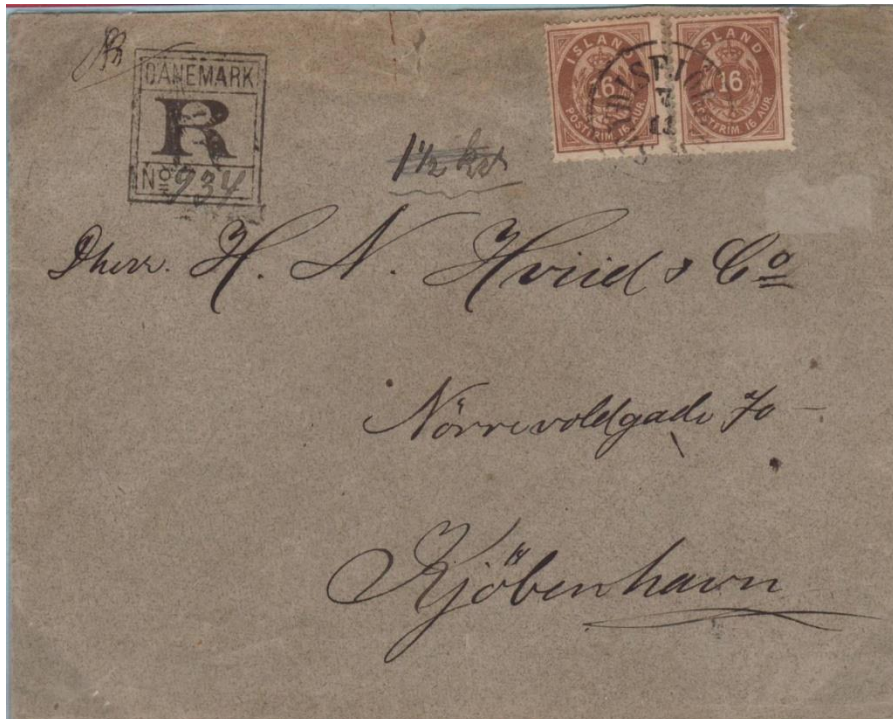 DANEMARK
R
No 934
ISLAND
16
POSTFRIM 16 AUR.
ISLAND
16
POSTFRIM 16 AUR.
7
11
1½
Dherr. H. N. Hviid & Co
Nörrevoldgade 70
Kjöbenhavn